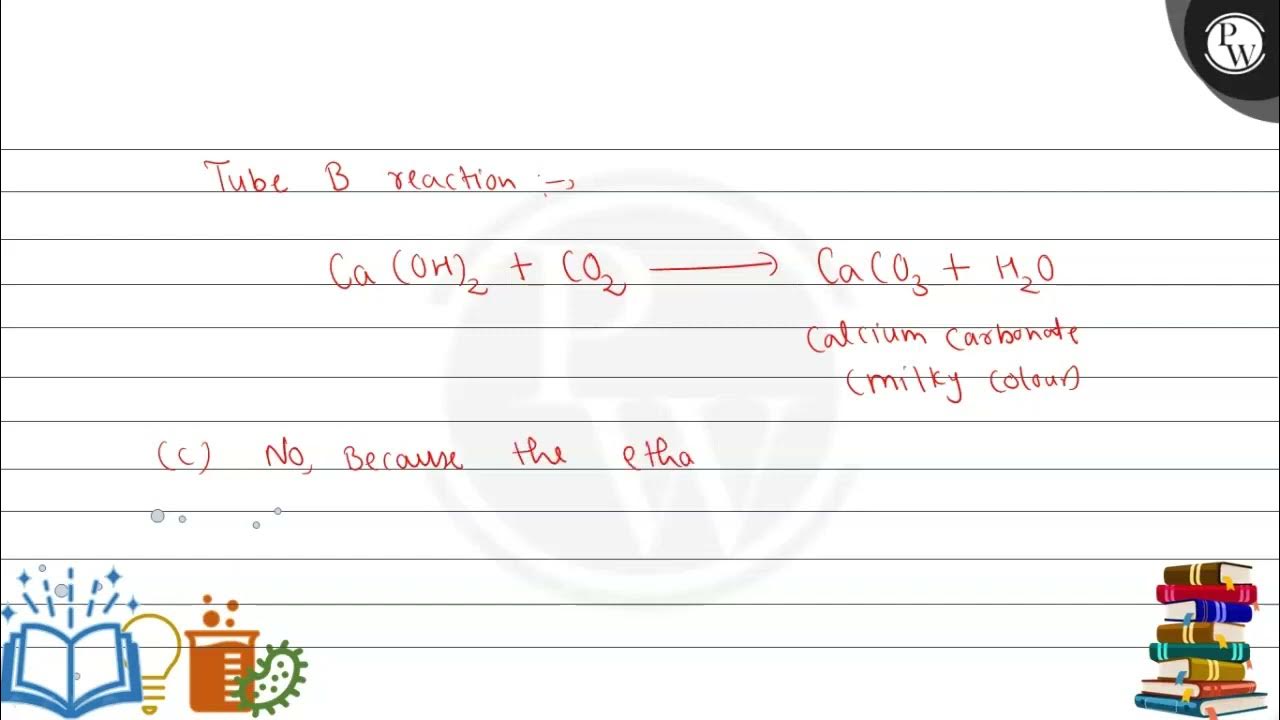 PW
Tube B reaction :→
Ca(OH)₂ + CO₂ ⟶ CaCO₃ + H₂O
Calcium carbonate
(milky colour)
(c) No, Because the etha
PW